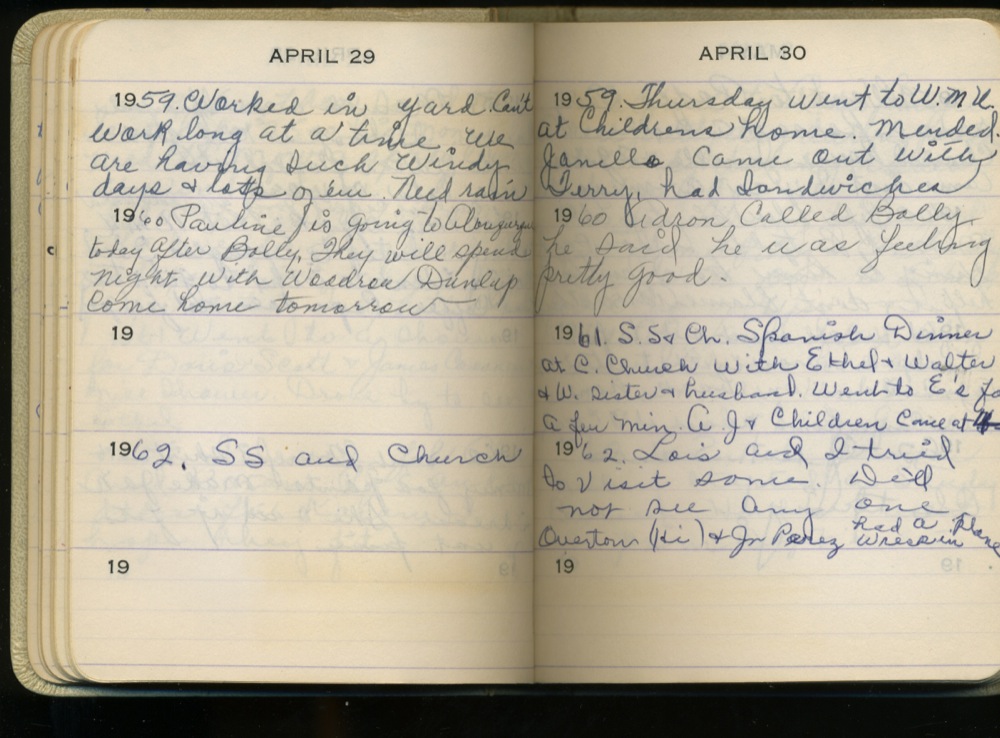 APRIL 29
1959. Worked in yard. Can't
work long at a time. We
are having such Windy
days & lots of 'em. Need rain
19'60 Pauline is going to
today after Bolly. They will spend
night with Woodrow Dunlap
Come home tomorrow
19
1962. SS and Church
19
APRIL 30
1959. Thursday Went to W.M.U.
at Childrens home. Mended.
Came out With
Terry, had Sandwiches
19'60 Called Bolly
he said he was feeling
pretty good.
1961. S.S & Ch. Spanish Dinner
at C. Church With Ethel & Walter
& W. sister & husband. Went to E's
a few min. A. J & Children Came at
19'62. Lois and I tried
to visit some. Did
not see any one
Overton (Hi) & Jr Perez had a Plane
Wreck in
19